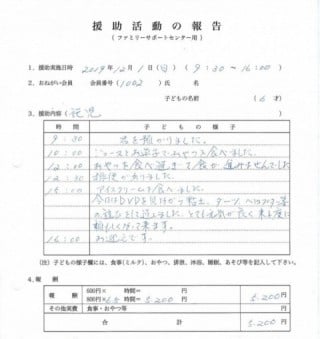 援助活動の報告
(ファミリーサポートセンター用)
1. 援助実施日時 2019年12月1日(日)(9:30~16:00)
2. おねがい会員 会員番号(1002)氏名
子どもの名前 (6才)
3. 援助内容(託児)
時間 子どもの様子
9:30 君を預かりました。
10:00 ジュースとお菓子でおやつを食べました。
12:00 おやつを食べ過ぎて食が進みませんでした
12:30 排便がありました。
15:00 アイスクリームを食べました。
今日はDVDを見
とても元気が良く
16:00 お迎えです。
(注)子どもの様子欄には、食事(ミルク)、おやつ、排泄、沐浴、睡眠、あそび等を記入して下さい。
4. 報酬
報酬 600円× 時間= 円
800円×6.5時間=5,200円 5,200円
その他実費 食事・おやつ等 円
合計 5,200円